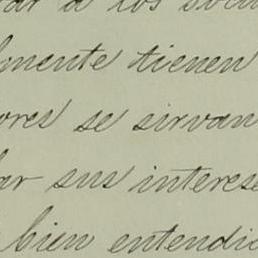 ar a los socio
lmente tienen
ores se sirvan
ar sus interese
bien entendid